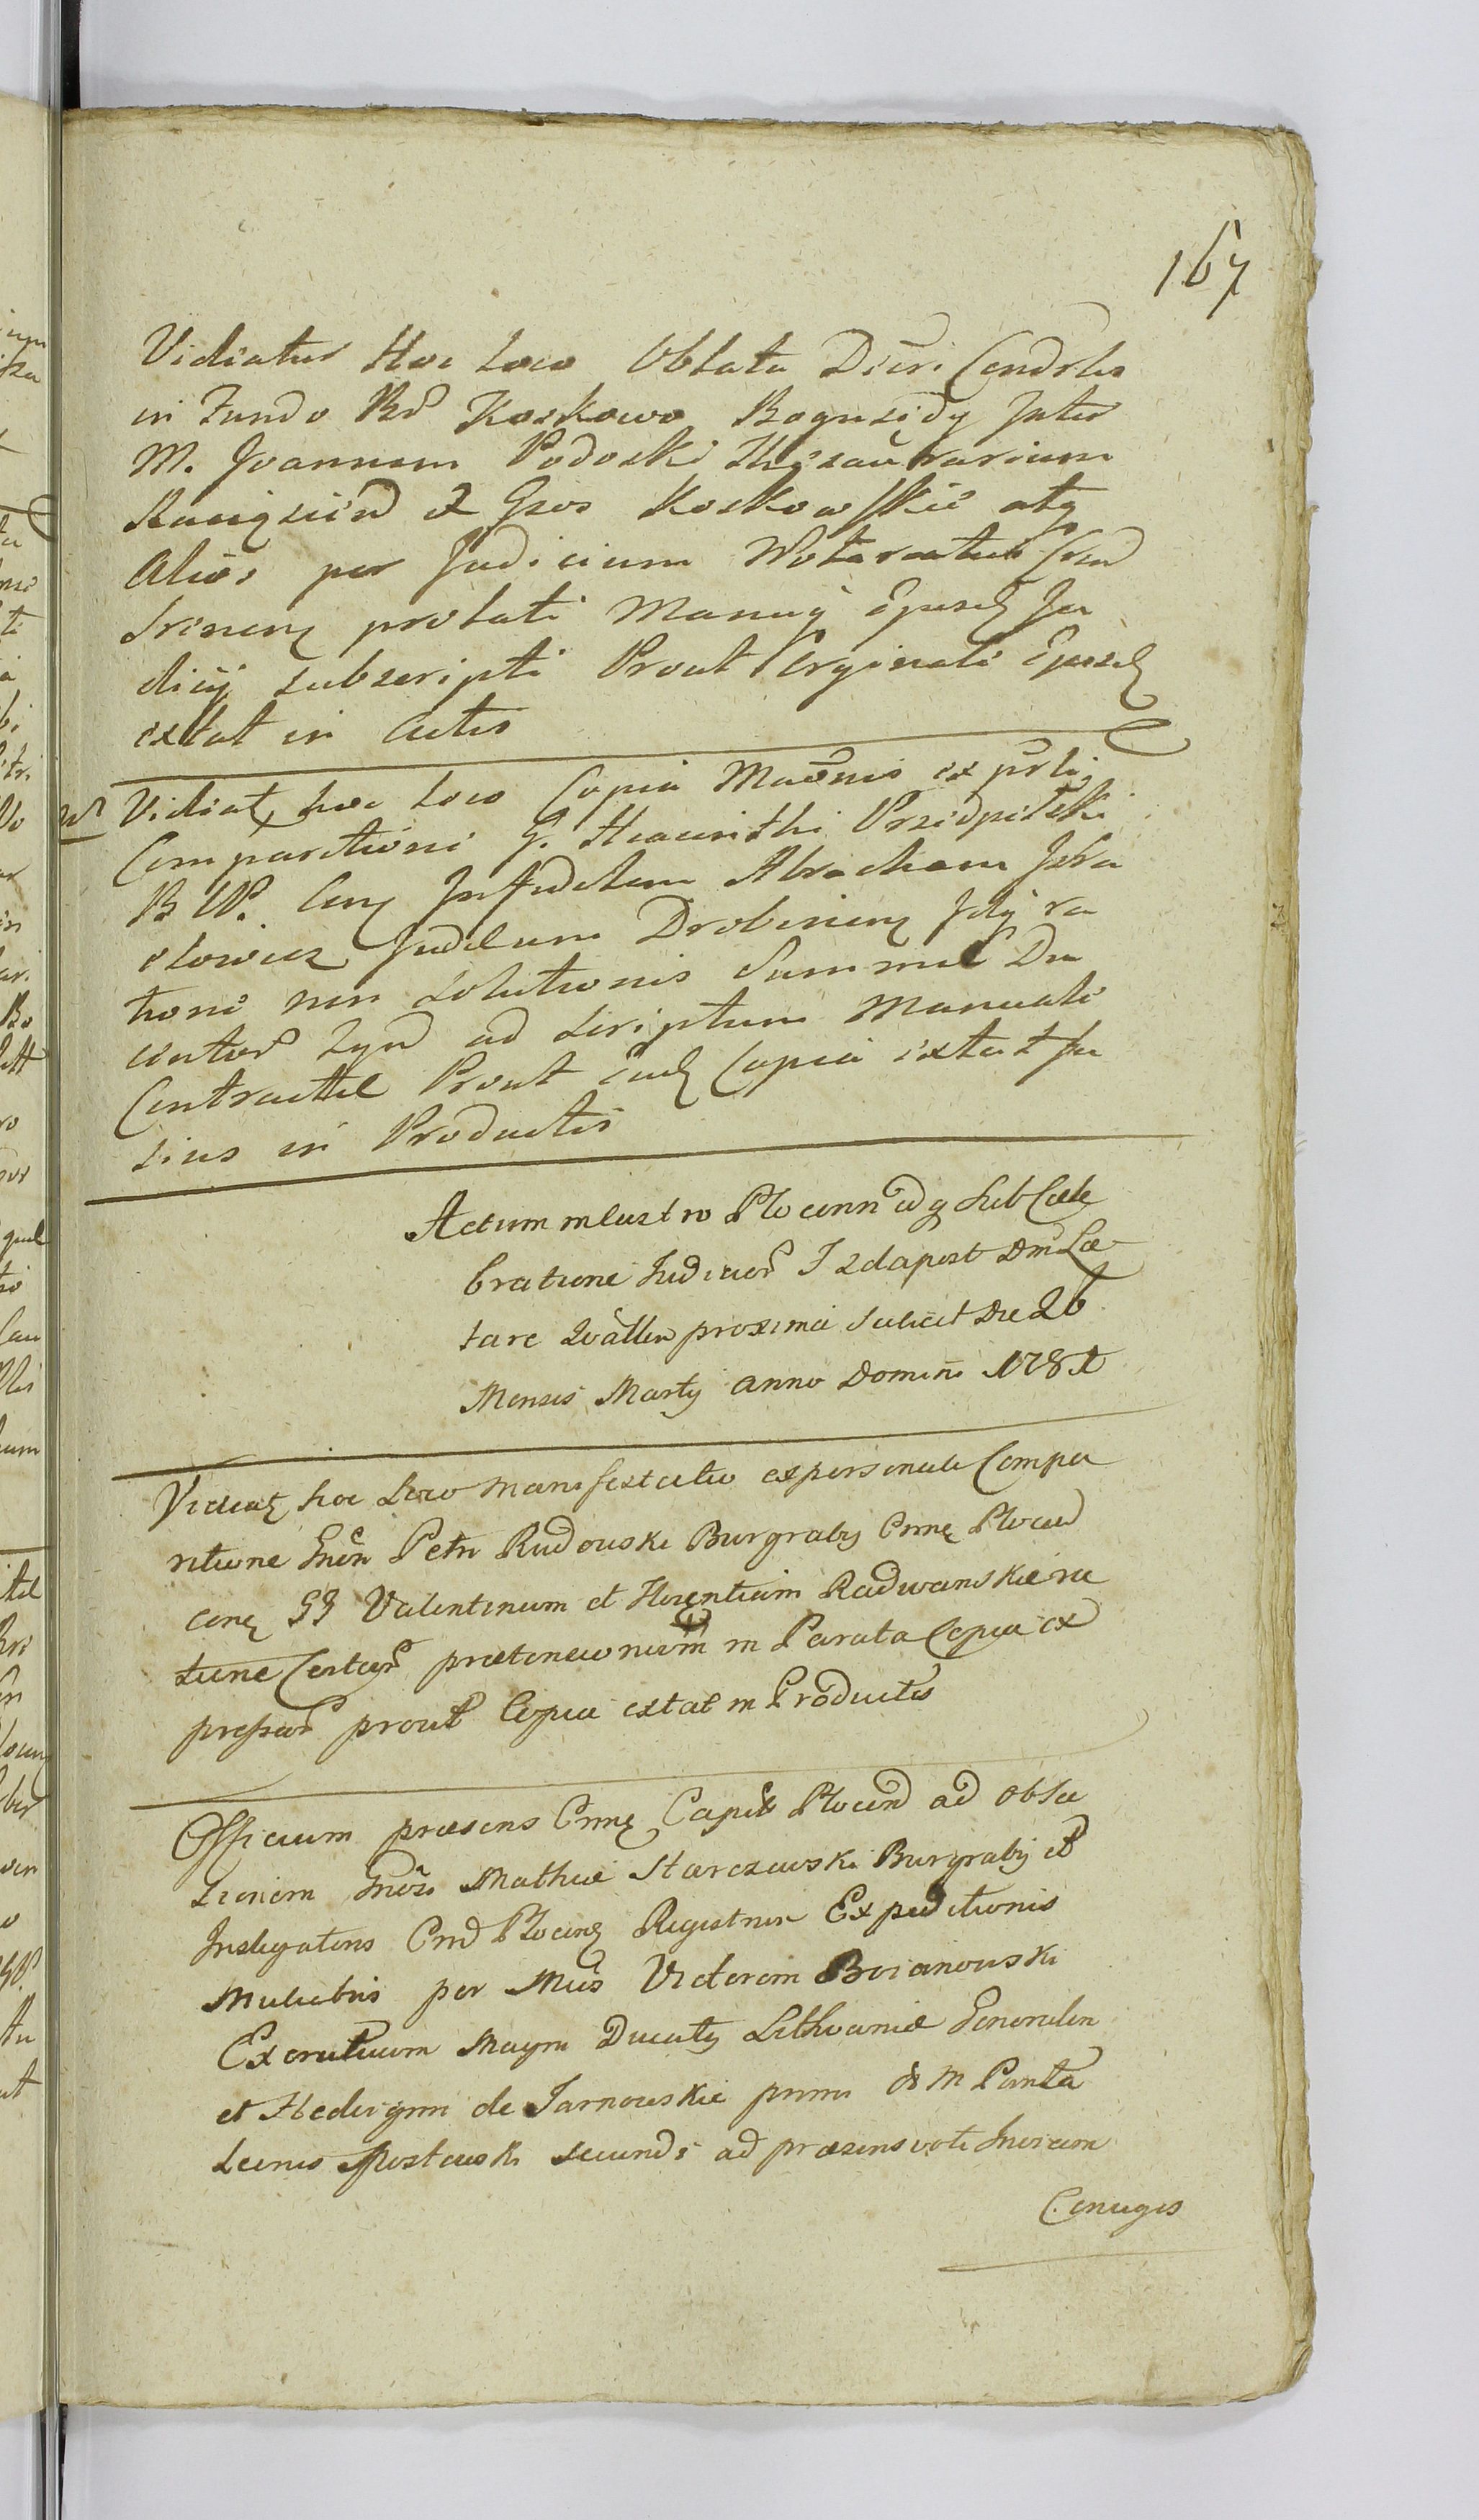 167
Vidiatur Hoc Loco Oblata Dicri Condrlis
in Fundo Bõr Koskowo Boguszidy Inter
M. Joannem Podoski Thesaurarium
Raciąziend & Gsos Koskowskie atq
Alios per Judicium Notoreatus
Srinenę prolati Manuq Ejusdę Ju
dicij subscripti Prout Orginali Ejusdę
extat in Actis
Vidiatę hoc Loco Copia Maõnis ex prli
Comparitioni G. Hiacinthi Przedpelski
B W. Conę Infidelem Abraham Izra
elowicz Judeum Drobinienę Idij ra
tione non Solutionis Summae Du
centor Zynd ad scriptum Manuale
Contractae Prout Eadę Copia extat fu
sius in Productis
Actum in Castro Plocenn adq sub Cele
bratione Judicior I 2dapost Dm̄ Læ
tare Qdällen proxima scilicet Die 26
Mensis Martij anno Domini 1781
Videatę hoc Loco Manifestatio ex personali Compa
ritione Gnẽn Petri Rudouski Burgrabij Crnnę Plocend
conę GG Valentinum et Florentium Radwanskie ra
tione Certarᵒ prætensionum in Parata Copia ex
pressarᵒ prout Copia extat in Productis
Officium præsens Crnnę Capitę Plocend ad obla
tionem Gnõsi Mathiæ Starczewski Burgrabij et
Instigatoris Crnd Plocenę Registrum Expeditionis
Mulubris per Mnũs Victorem Boianowski
Exercituum Magni Ducatq Lithvaniæ Generalen
et Hedvigim de Jarnowskie primi & M Panta
Leonis Mostowski secundi ad præsens voti Inorum
Conuges